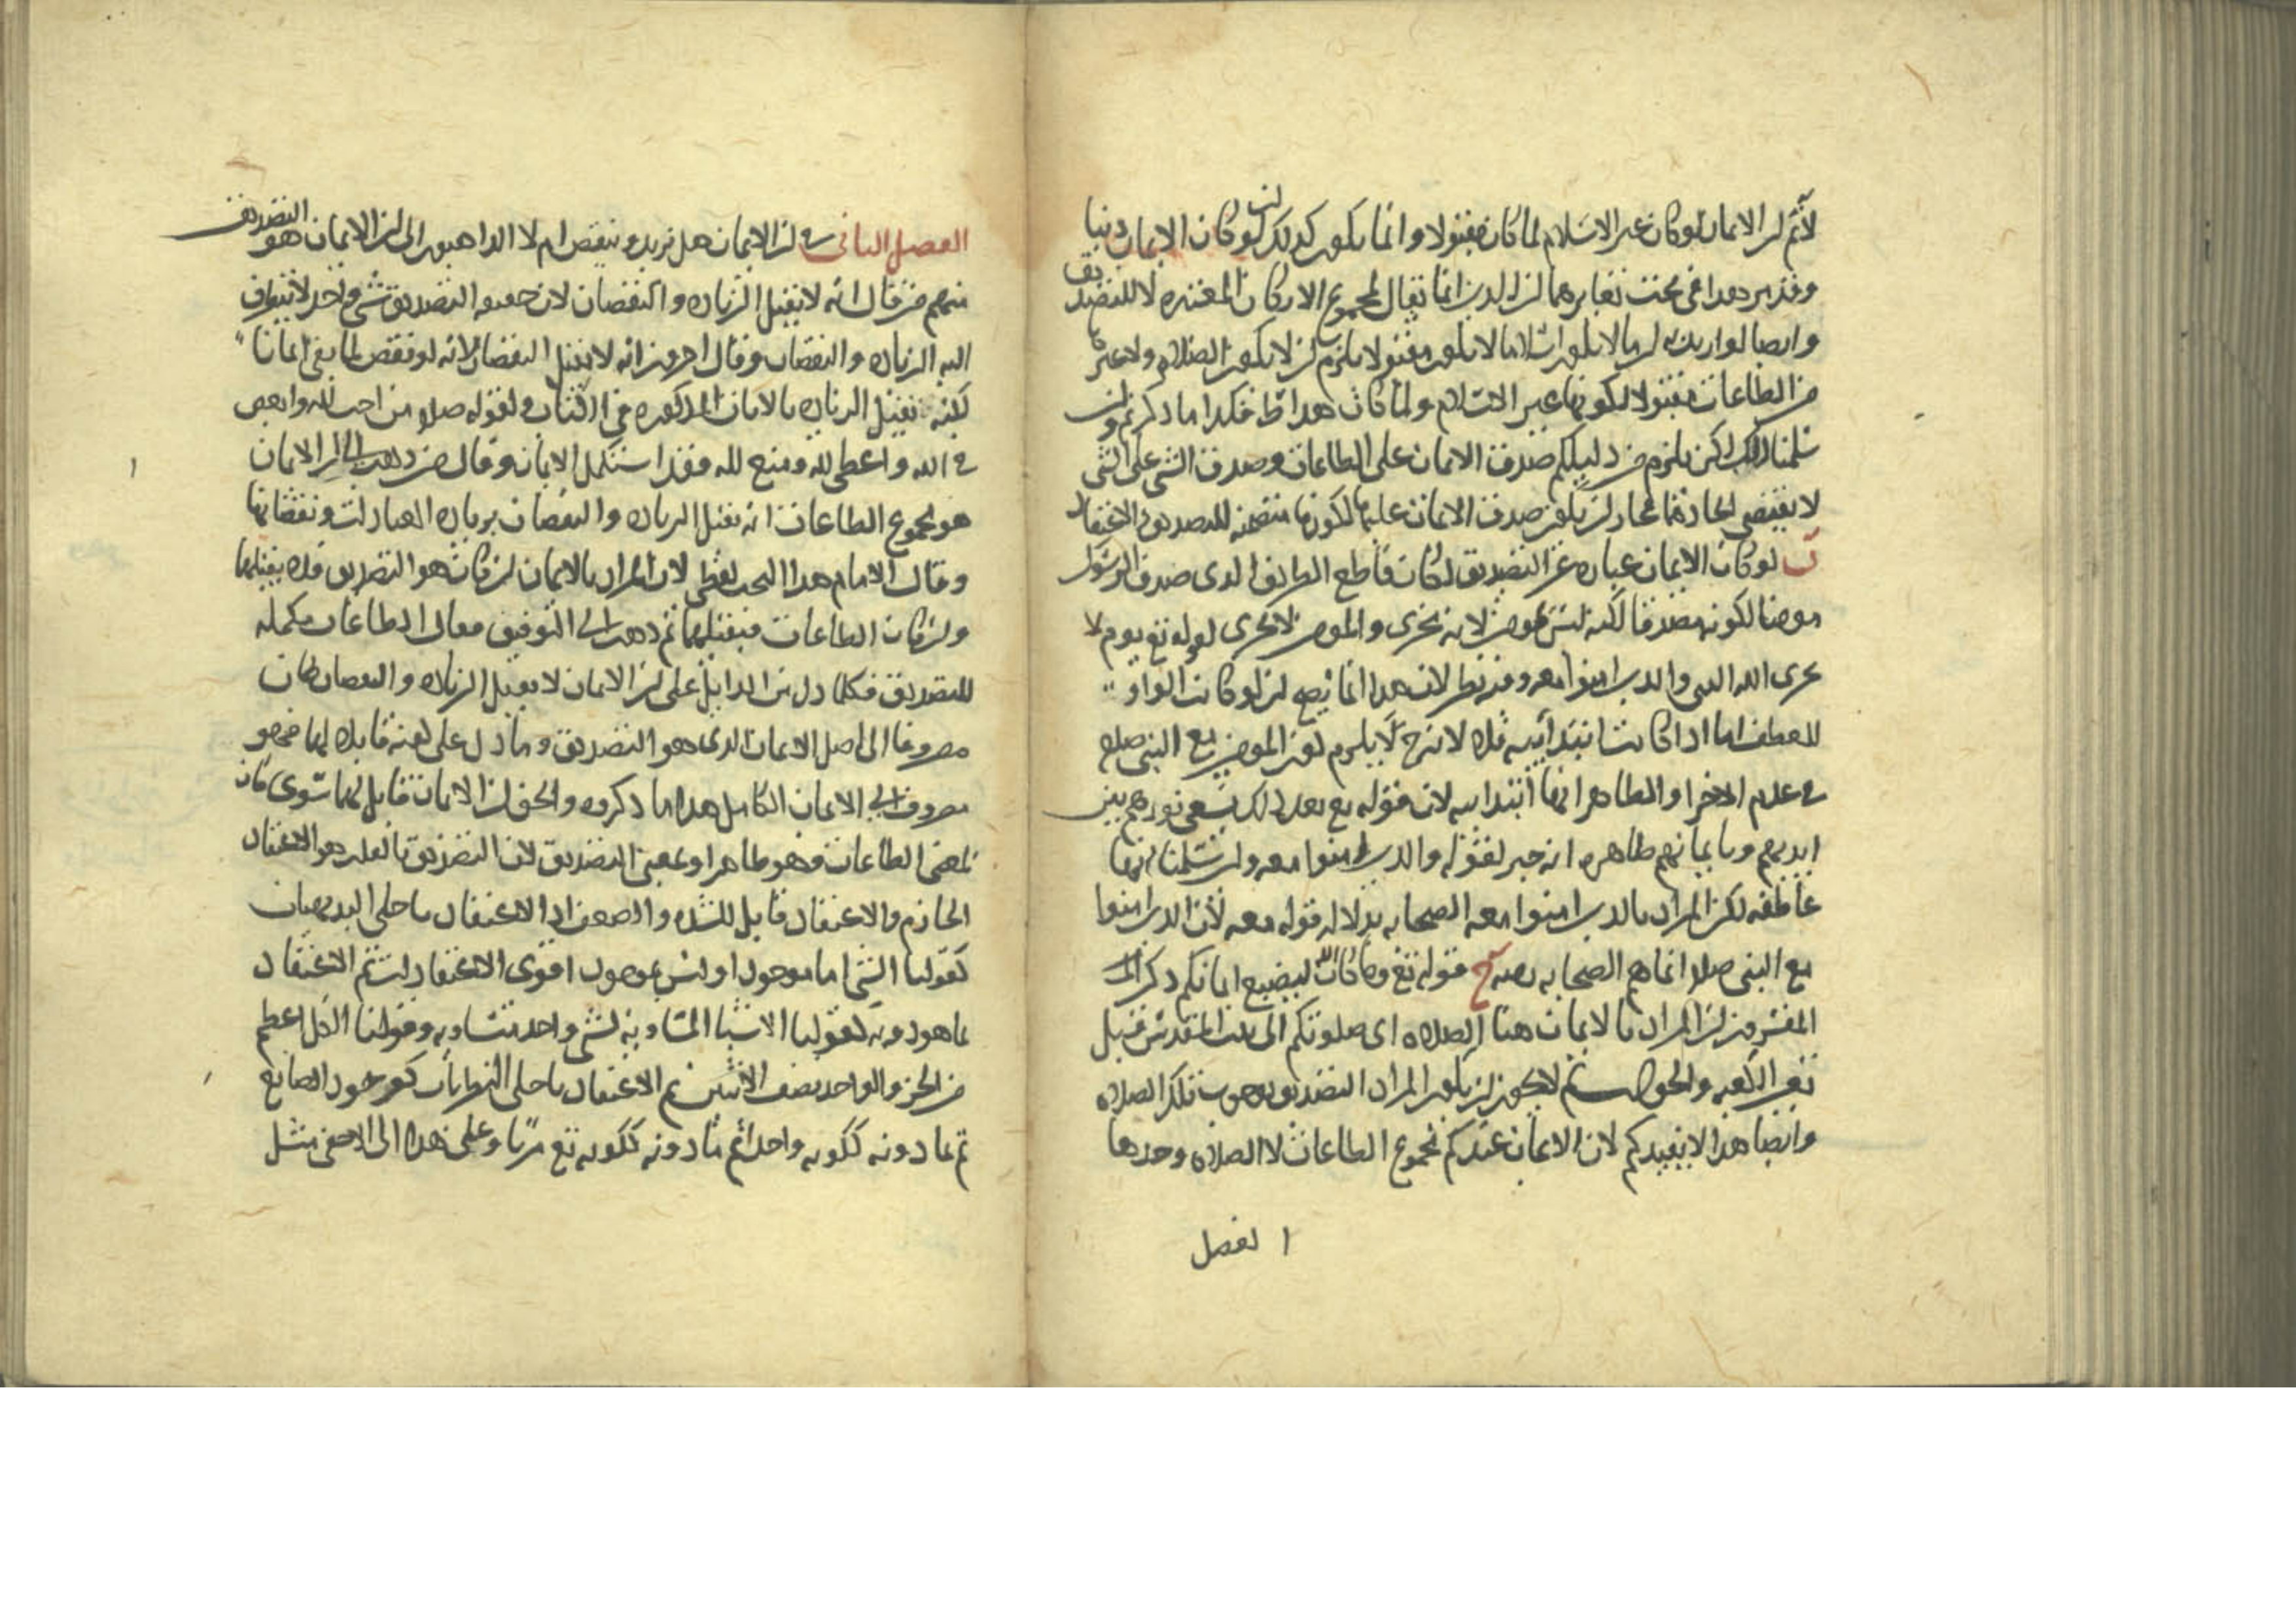 لانم ان الايمان لو كان غير الاسلام لما كان مقبولا وانما يكون كذلك ان لو كان الايمان دينا
وقد مر هذا في بحث تغايرهما لان الدين انما يقال لمجموع الاركان المعتبره لا للتصديق
وايضا لو اريد ان ما لا يكون اسلاما لا يكون مقبولا يلزم ان لا يكون الصلاه ولا غيرها
من الطاعات مقبولا لكونها غير الاسلام ولما كان هذا بط فكذا ما ذكرتم ولئن
سلمنا ذلك لكن يلزم من دليلكم صدق الايمان على الطاعات وصدق الشي على الشي
لا يقتضي اتحادهما فجاز ان يكون صدق الايمان عليها لكونها متضمنه للتصديق والاعتقاد
ب لو كان الايمان عباره عن التصديق لكان قاطع الطريق الذي صدق الرسول
مومنا لكونه مصدقا لكنه ليس بمومن لانه يخزى والمومن لا يخزى لقوله تع يوم لا
يخزى الله النبي والذين امنوا معه وفيه نظر لان هذا انما يصح ان لو كانت الواو
للعطف اما اذا كانت ابتدائيه فلا لانه ح لا يلزم كون المومن مع النبي صلعم
في عدم الاخزا والظاهر انها ابتدائيه لان قوله تع بعد ذلك يسعى نورهم بين
ايديهم وبايمانهم ظاهره انه خبر لقوله والذين امنوا معه ولئن سلمنا انها
عاطفه لكن المراد بالذين امنوا معه الصحابه بدلاله قوله معه لان الذين امنوا
مع النبي صلعم انما هم الصحابه رضه ج قوله تع وما كان الله ليضيع ايمانكم ذكر
المفسرون ان المراد بالايمان هنا الصلاه اى صلوتكم الى بيت المقدس قبل
تعين الكعبه والجواب لم لا يجوز ان يكون المراد التصديق بوجوب تلك الصلاه
وايضا هذا لا يفيدكم لان الايمان عندكم مجموع الطاعات لا الصلاه وحدها
الفصل
الفصل الثاني في ان الايمان هل يزيد وينقص ام لا الذاهبون الى ان الايمان هو التصديق
منهم من قال انه لا يقبل الزياده والنقصان لان حقيقه التصديق شي واحد لا يتطرق
اليه الزياده والنقصان وقال اخرون انه لا يقبل النقصان لانه لو نقص لما بقي ايمانا
لكنه يقبل الزياده بالايات المذكوره في الكتاب ولقوله صلعم من احب لله وابغض
في الله واعطى لله ومنع لله فقد استكمل الايمان وقال من ذهب الى ان الايمان
هو مجموع الطاعات انه يقبل الزياده والنقصان بزياده العبادات ونقصانها
وقال الامام هذا البحث لفظي لان المراد بالايمان ان كان هو التصديق فلا يقبلهما
وان كان الطاعات فيقبلهما ثم ذهب الى التوفيق فقال الطاعات مكمله
للتصديق فكلما دل من الدلايل على ان الايمان لا يقبل الزياده والنقصان كان
مصروفا الى اصل الايمان الذى هو التصديق وما دل على كونه قابلا لهما فهو
مصروف الى الايمان الكامل هذا ما ذكروه والحق ان الايمان قابل لهما سوى كان
بمعنى الطاعات وهو ظاهر او بمعنى التصديق لان التصديق بالقلب هو الاعتقاد
الجازم والاعتقاد قابل للشده والضعف اذ الاعتقاد باجلى البديهيات
كقولنا الشي اما موجود او ليس بموجود اقوى الاعتقادات ثم الاعتقاد
بما هو دونه كقولنا الاشيا المساويه لشي واحد متساويه وقولنا الكل اعظم
من الجز والواحد نصف الاثنين ثم الاعتقاد باجلى النظريات كوجود الصانع
ثم بما دونه ككونه واحدا ثم بما دونه ككونه تع مرئيا وعلى هذا الى الاخفى مثل